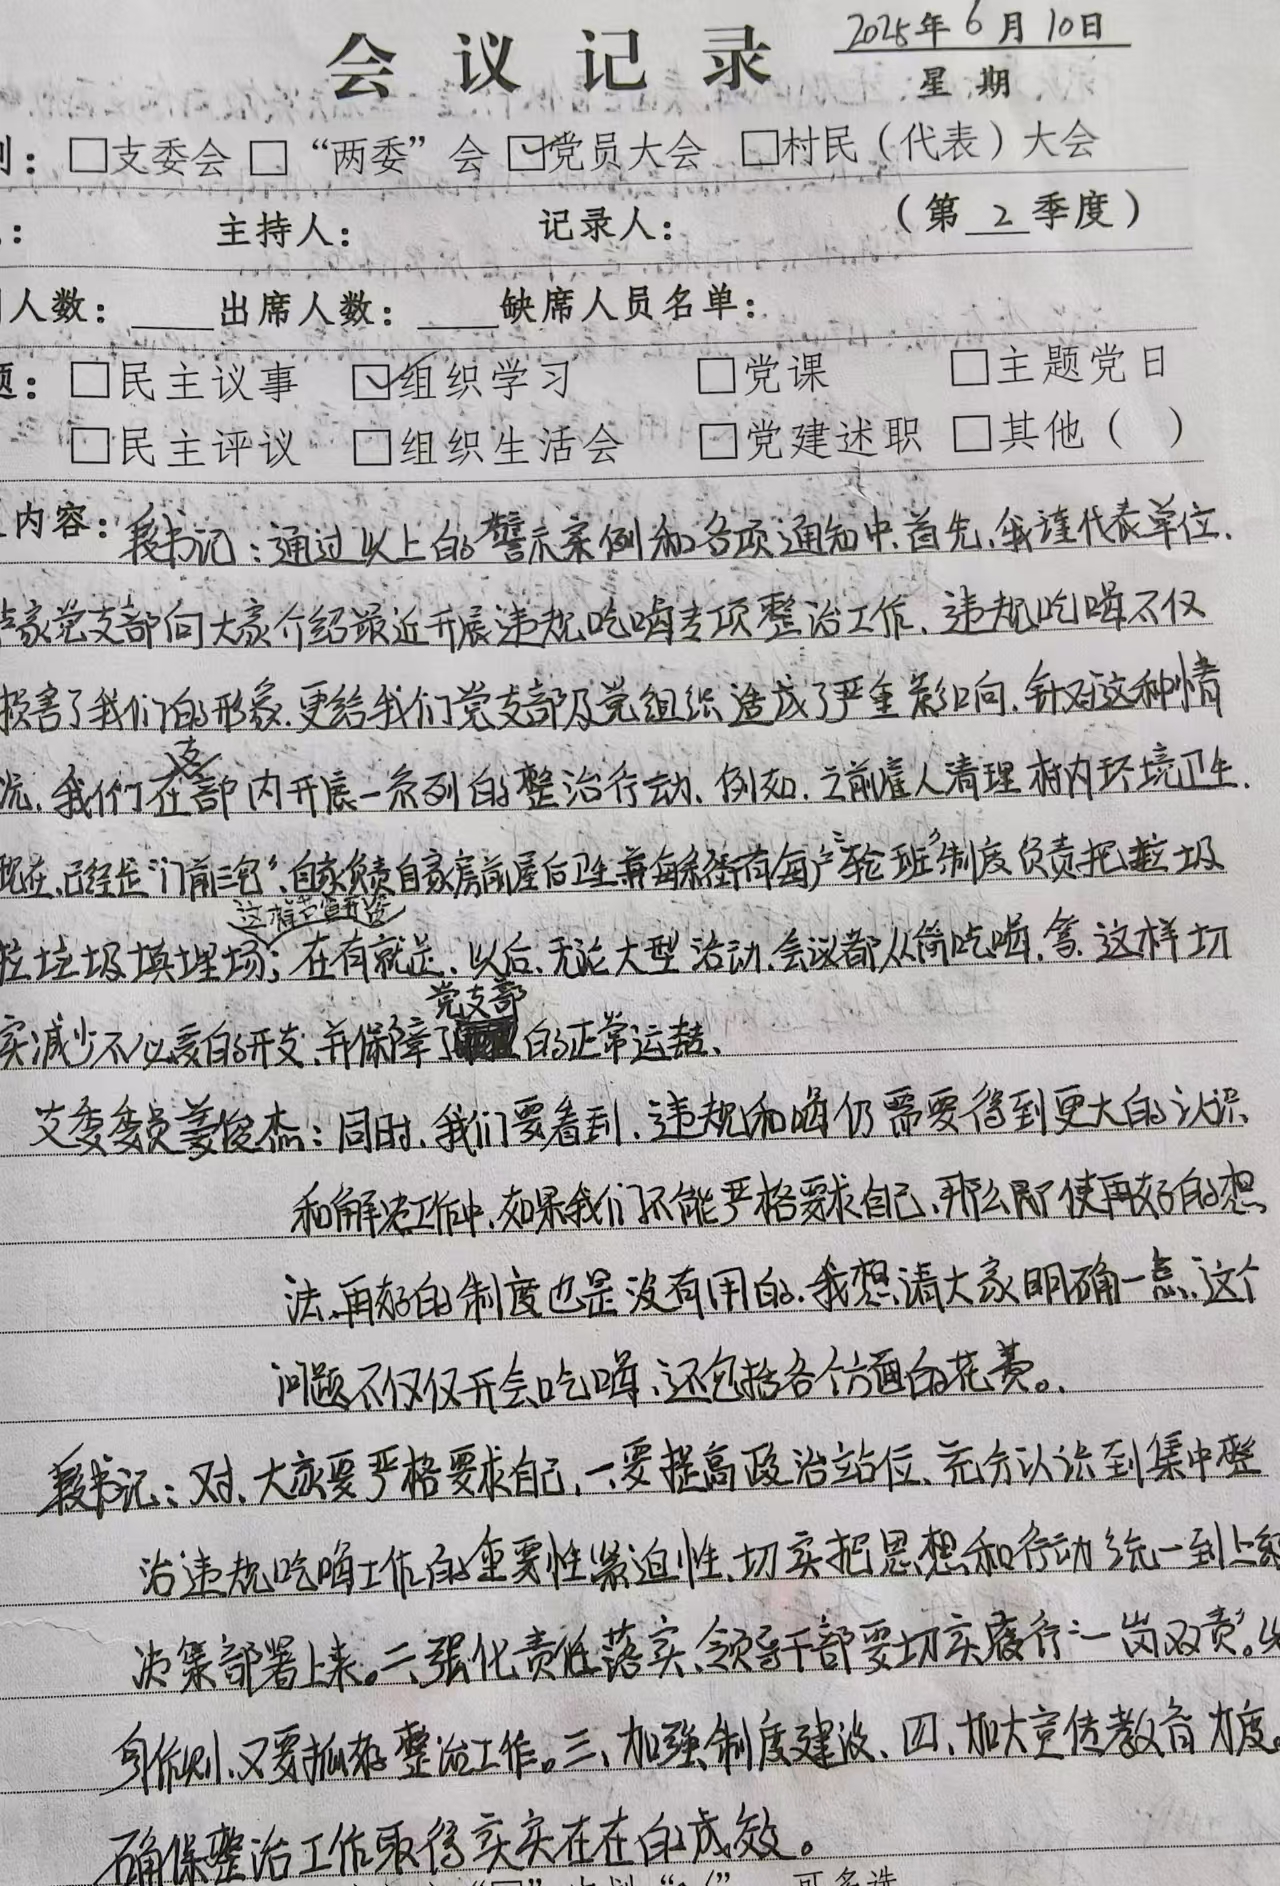 会议记录
2025年6月10日
星期
：□支委会 □“两委”会 ☑党员大会 □村民（代表）大会
： 主持人： 记录人： （第2季度）
人数：____出席人数：____缺席人员名单：
题：□民主议事 ☑组织学习 □党课 □主题党日
□民主评议 □组织生活会 □党建述职 □其他（ ）
内容：书记：通过以上的警示案例和各项通知中、首先、我谨代表单位、
家党支部向大家介绍最近开展违规吃喝专项整治工作、违规吃喝不仅
损害了我们的形象、更给我们党支部及党组织造成了严重影响、针对这种情
况、我们在支部内开展一系列的整治行动、例如、之前雇人清理村内环境卫生、
现在、已经是“门前三包”、自家负责自家房前屋后卫生并每条街有每户“轮班”制度负责把垃圾
拉垃圾填埋场；这样节省开资在有就是、以后、无论大型活动、会议都从简吃喝、等、这样切
实减少不必要的开支、并保障了党支部的正常运转、
支委委员姜俊杰：同时、我们要看到、违规和喝仍需要得到更大的认识
和解决工作中、如果我们不能严格要求自己、那么即使再好的想
法、再好的制度也是没有用的、我想请大家明确一点、这个
问题不仅仅开会吃喝、还包括各个方面的花费。、
书记：对、大家要严格要求自己、一、要提高政治站位、充分认识到集中整
治违规吃喝工作的重要性紧迫性、切实把思想和行动统一到上级
决策部署上来。二、强化责任落实、领导干部要切实履行“一岗双责”。以
身作则、又要抓好整治工作。三、加强制度建设、四、加大宣传教育力度。
确保整治工作取得实实在在的成效。